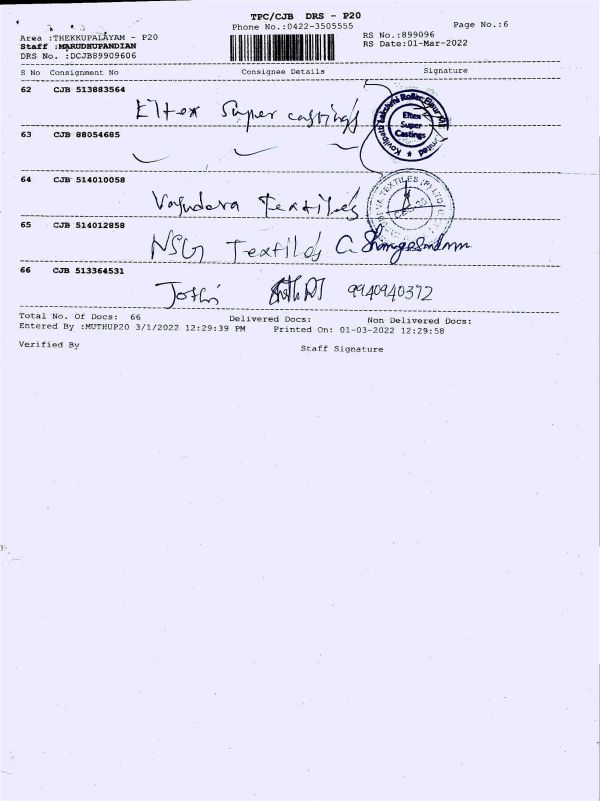 TPC/CJB DRS - P20
Phone No.:0422-3505555
Page No.:6
Area :THEKKUPALAYAM - P20
RS No.:899096
Staff :MARUDHUPANDIAN
RS Date:01-Mar-2022
DRS No. :DCJB89909606
S No Consignment No Consignee Details Signature
62 CJB 513883564
Eltex Super castings
Eltex
Super
Castings
63 CJB 88054685
64 CJB 514010058
Vasudeva Textiles
65 CJB 514012858
NSG Textiles
66 CJB 513364531
Joshi 9940940372
Total No. Of Docs: 66 Delivered Docs: Non Delivered Docs:
Entered By :MUTHUP20 3/1/2022 12:29:39 PM Printed On: 01-03-2022 12:29:58
Verified By Staff Signature